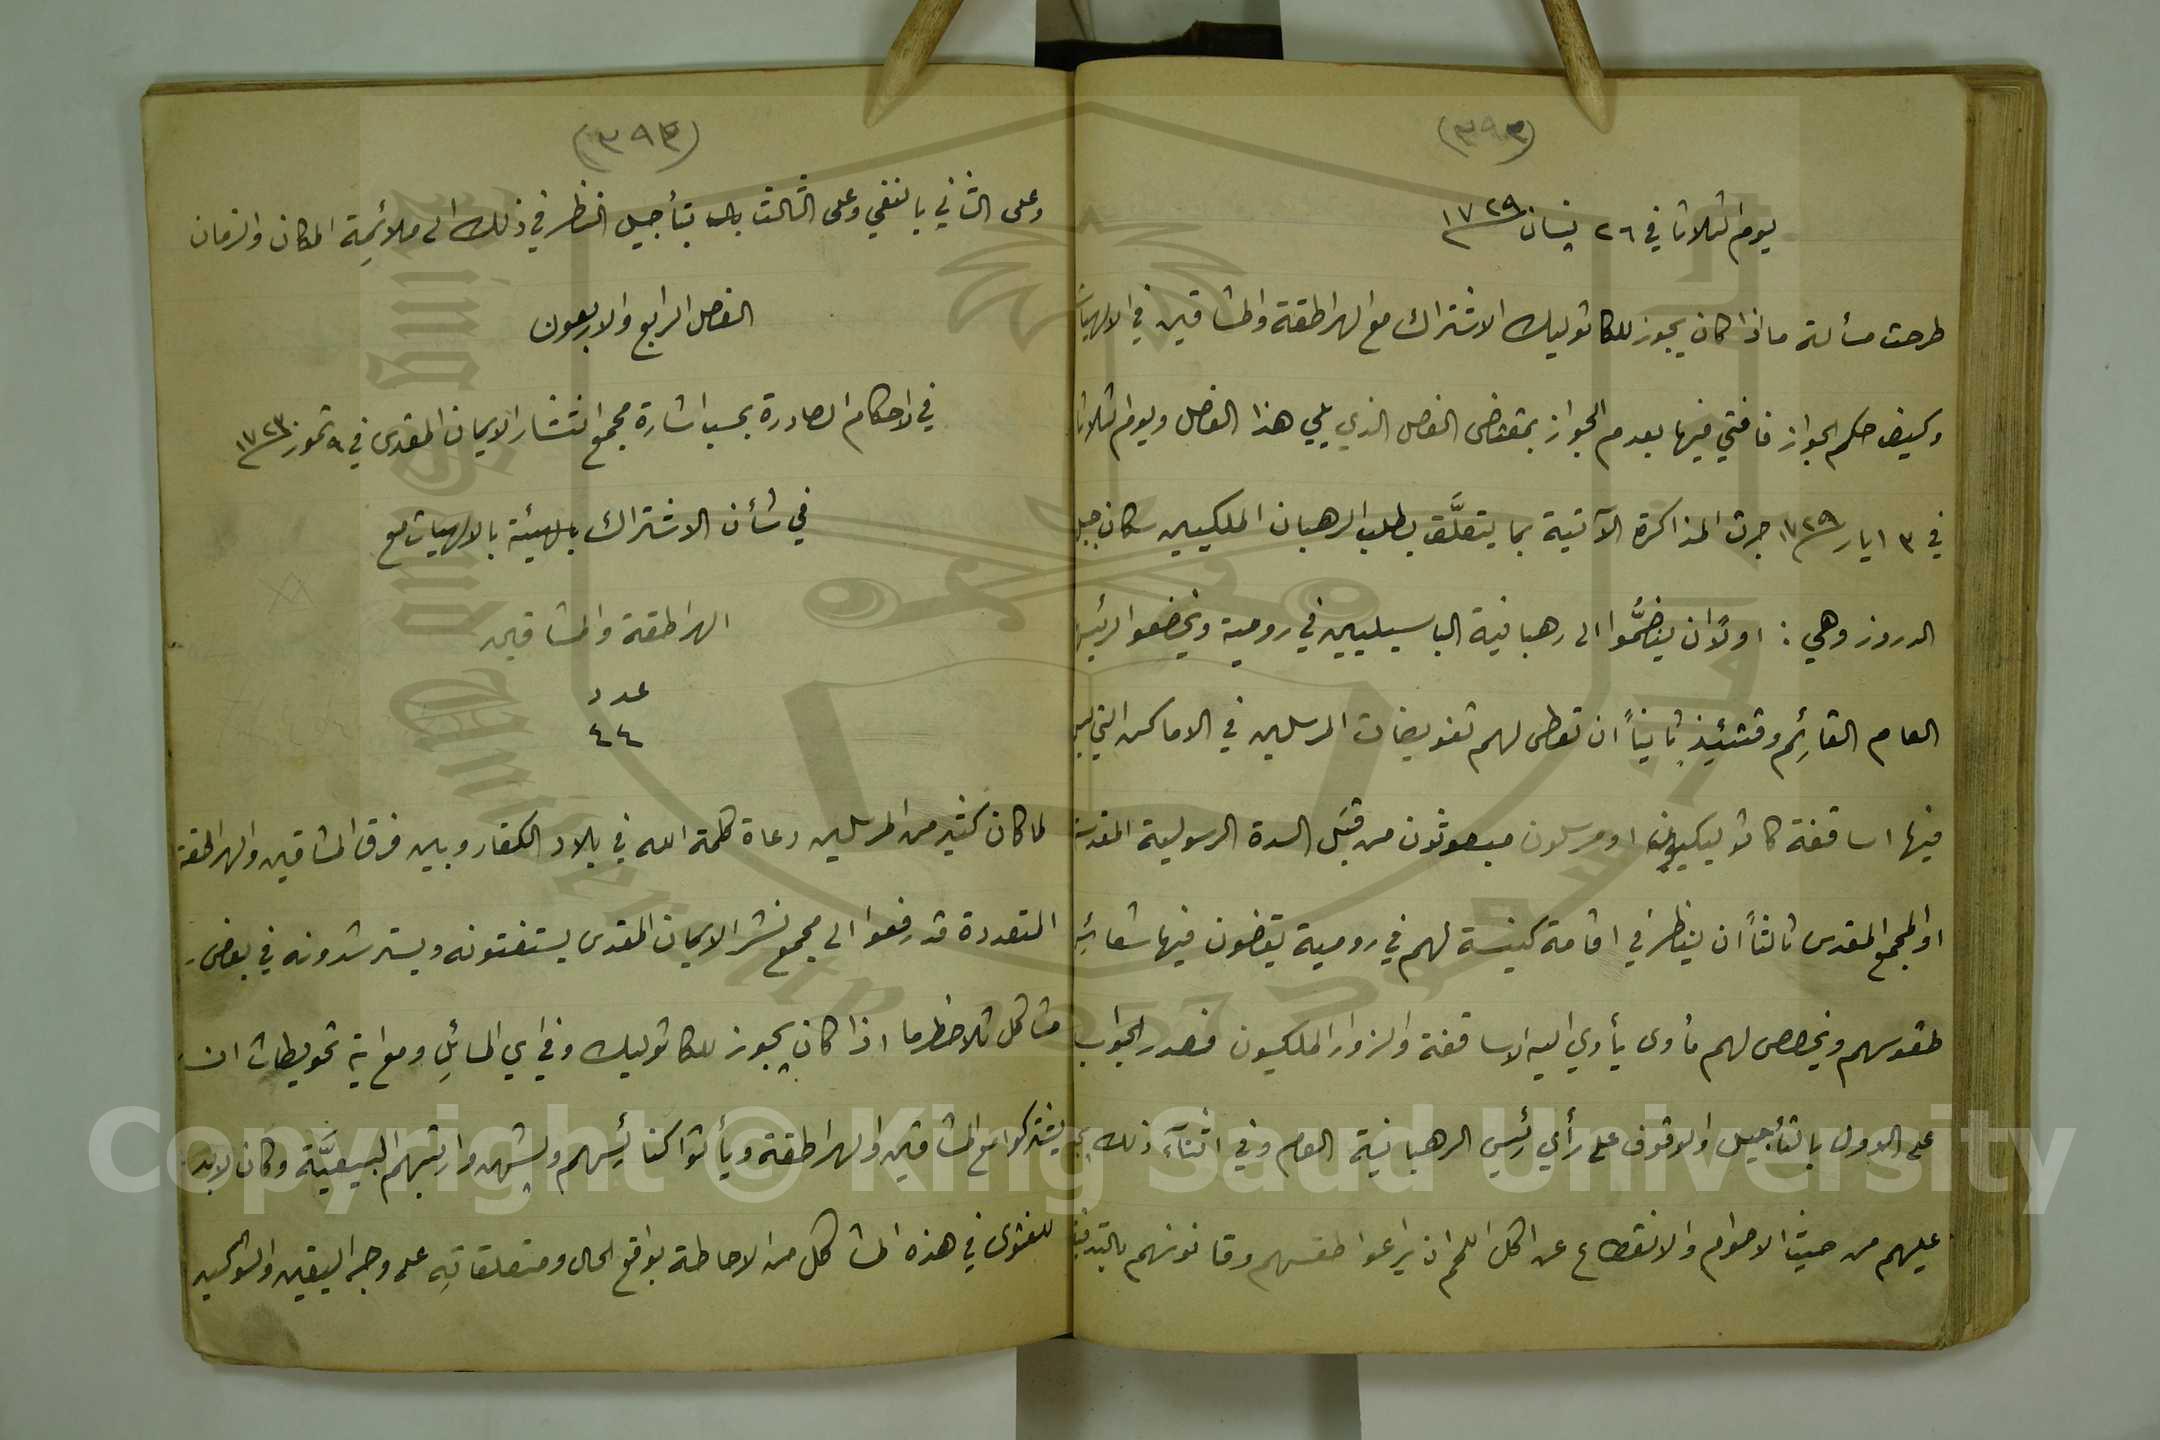 (٣٩٣)
يوم الثلاثا في ٢٦ نيسان ١٧٢٩
طرحت مسألة ما اذا كان يجوز للكاثوليك الاشتراك مع الهراطقة والمشاقين في الالهيات
وكيف حكم الجواز فافتي فيها بعدم الجواز بمقتضى الفصل الذي يلي هذا الفصل ويوم الثلاثا
في ٣ ايار ١٧٢٩ جرت المذاكرة الآتية بما يتعلَّق بطلب الرهبان الملكيين سكان جبل
الدروز وهي : اولًا ان ينضمُّوا الى رهبانية الباسيليين في رومية ويخضعوا لرئيسها
العام القائِم وقتئيذٍ ثانياً ان تعطى لهم تفويضات المرسلين في الاماكن التي ليس
فيها اساقفة كاثوليكيون او مرسلون مبعوثون من قبَل السدة الرسولية المقدسة
او المجمع المقدس ثالثاً ان ينظر في اقامة كنيسة لهم في رومية يقضون فيها شعائِر
طقوسهم ويخصص لهم مأوى يأوي اليه الاساقفة والزوار الملكيون فصدر الجواب
على الاول بالتأجيل والوقوف على رأي رئيس الرهبانية العام وفي اثنآء ذلك يجب
عليهم من حيث الاصوام والانقطاع عن اكل اللحم ان يراعوا طقسهم وقانونهم بالتدقيق
(٣٩٤)
وعلى الثاني بالنفي وعلى الثالث بتأجيل النظر في ذلك الى ملائمِة المكان والزمان
الفصل الرابع والاربعون
في الاحكام الصادرة بحسب اشارة مجمع انتشار الايمان المقدس في ٩ تموز ١٧٢٣
في شأن الاشتراك بالهيئة بالالهيات مع
الهراطقة والمشاقين
عدد
٤٤
لما كان كثير من المرسلين دعاة كلمة الله في بلاد الكفار وبين فرق المشاقين والهراطقة
المتعددة قد رفعوا الى مجمع نشر الايمان المقدس يستفتونه ويسترشدونه في بعض
مشاكل تلاحظ ما اذا كان يجوز للكاثوليك وفي اي المسائِل ومع اية تحويطات ان
يشتركوا مع المشاقين والهراطقة ويأتوا كنائِسهم ويشهدوا رتبهم البيعيَّة وكان لابد
للفتوى في هذه المشاكل من الاحاطة بواقع الحال ومتعلقاتِه على وجه اليقين والتوكيد
Copyright © King Saud University